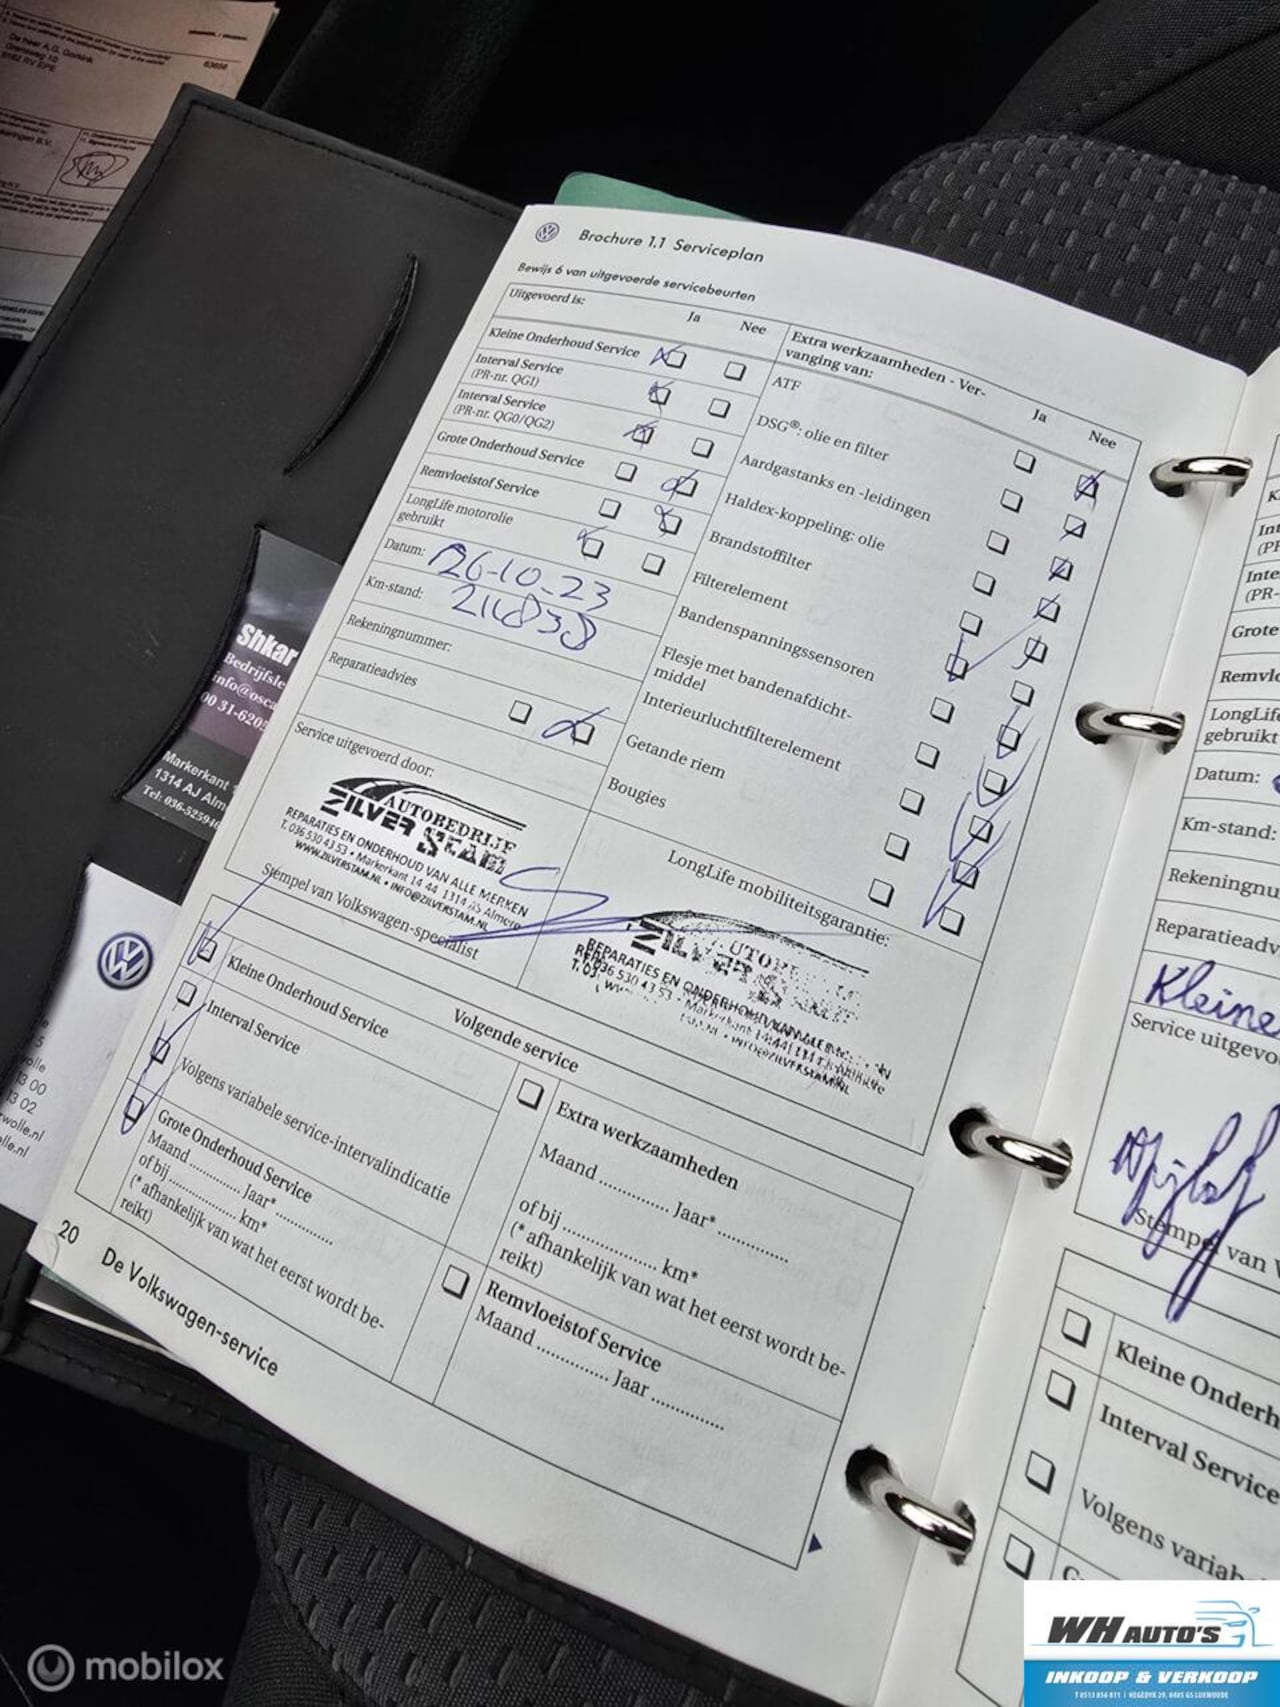 De heer A.G. Gortink
63656
8162 RV EPE
Brochure 1.1 Serviceplan
Bewijs 6 van uitgevoerde servicebeurten
Uitgevoerd is:
Ja
Nee
Kleine Onderhoud Service
Interval Service
(PR-nr. QG1)
Interval Service
(PR-nr. QG0/QG2)
Grote Onderhoud Service
Remvloeistof Service
LongLife motorolie
gebruikt
Datum: 26-10-23
Km-stand:
Rekeningnummer:
Reparatieadvies
Service uitgevoerd door:
AUTOBEDRIJF
ZILVER STAD
REPARATIES EN ONDERHOUD VAN ALLE MERKEN
T. 036 530 43 53 • Markerkant 14 44 1314 AS Almere
WWW.ZILVERSTAD.NL • INFO@ZILVERSTAD.NL
Stempel van Volkswagen-specialist
Extra werkzaamheden - Ver-
vanging van:
Ja
Nee
ATF
DSG®: olie en filter
Aardgastanks en -leidingen
Haldex-koppeling: olie
Brandstoffilter
Filterelement
Bandenspanningssensoren
Flesje met bandenafdicht-
middel
Interieurluchtfilterelement
Getande riem
Bougies
LongLife mobiliteitsgarantie:
REPARATIES EN ONDERHOUD
036 530 43 53
Volgende service
Kleine Onderhoud Service
Interval Service
Volgens variabele service-intervalindicatie
Grote Onderhoud Service
Maand ............ Jaar* ..............
of bij ................ km*
(* afhankelijk van wat het eerst wordt be-
reikt)
Extra werkzaamheden
Maand ............ Jaar* ..............
of bij ................ km*
(* afhankelijk van wat het eerst wordt be-
reikt)
Remvloeistof Service
Maand ............ Jaar ..............
20
De Volkswagen-service
Shkar
Bedrijfsle
info@osca
00 31-620
Markerkant
1314 AJ Alm
Tel: 036-52594
13 00
13 02
Grote
LongLife
gebruikt
Datum:
Km-stand:
Rekeningnu
Reparatieadv
Kleine
Service uitgevo
Stempel van
Kleine Onderh
Interval Service
Volgens variab
mobilox
WH AUTO'S
INKOOP & VERKOOP
T 0513 856 811 | HEGEDYK 29, 8405 GS LUXWOUDE